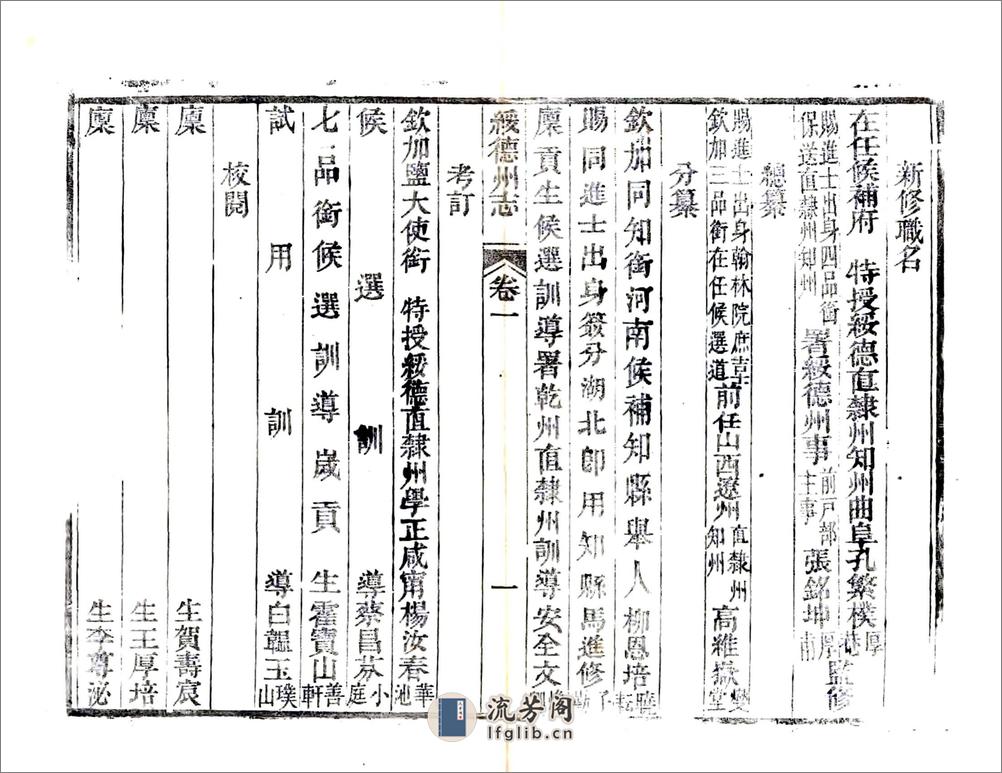 新修職名
在任候補府　特授綏德直隸州知州曲阜孔繁樸厚巷監修
賜進士出身四品銜保送直隸州知州署綏德州事前戶部主事張銘坤厚甫
總纂
賜進士出身翰林院庶吉士欽加三品銜在任候選道前任山西遼州直隸州知州高維嶽燮堂
分纂
欽加同知銜河南候補知縣舉人柳恩培
賜同進士出身簽分湖北即用知縣馬進修子
廩貢生候選訓導署乾州直隸州訓導安全文
綏德州志　卷一　一
考訂
欽加鹽大使銜　特授綏德直隸州學正咸甯楊汝春華池
候選訓導蔡昌芬小庭
七品銜候選訓導歲貢生霍寶山善軒
試用訓導白韞玉璞山
校閱
廩生賀壽宸
廩生王厚培
廩生李尊泌
流芳阁
lfglib.cn